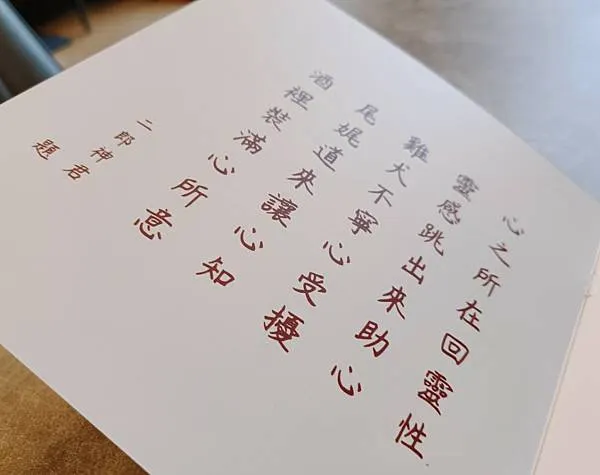 心之所在回靈性
靈感跳出來助心
雞犬不寧心受擾
尾娓道來讓心知
酒裡裝滿心所意
二郎神君
題